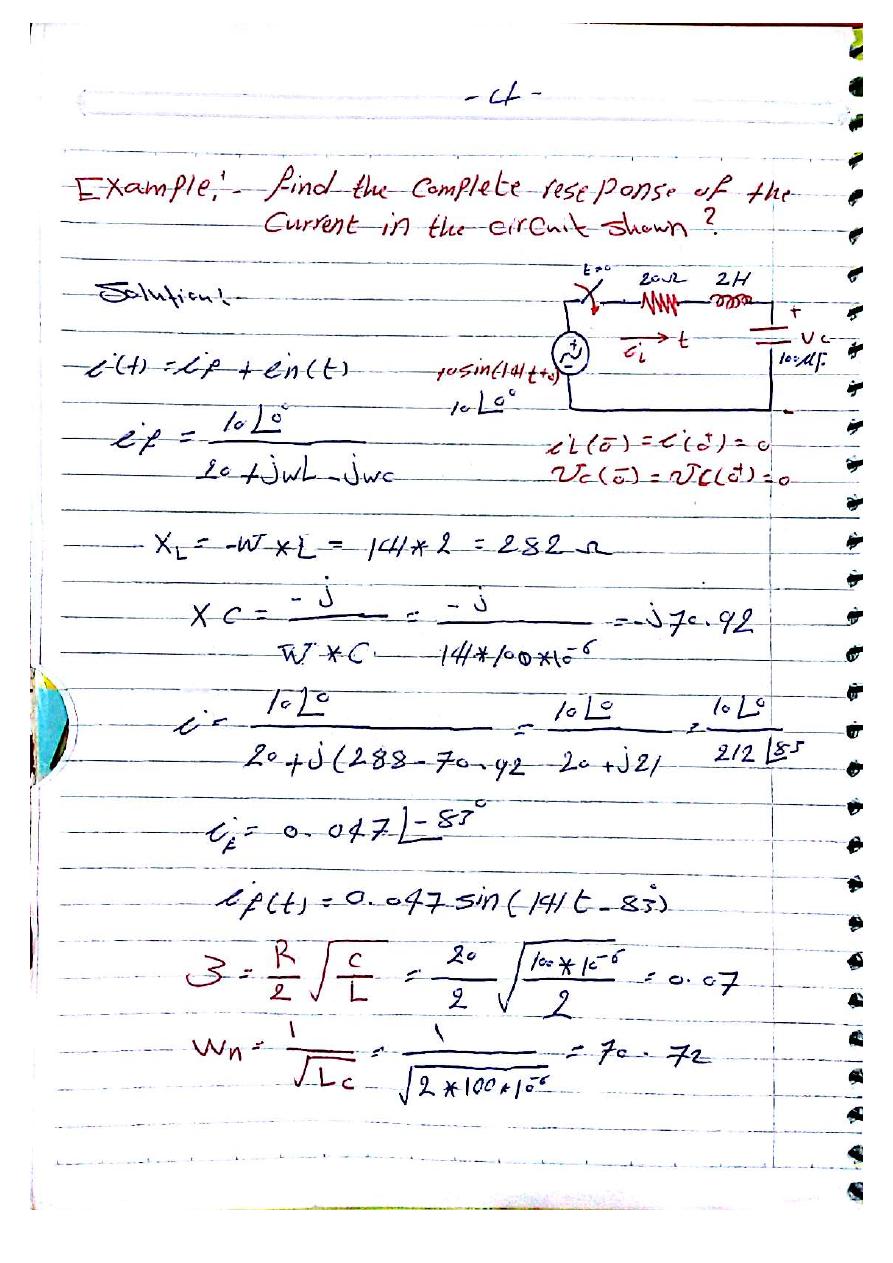 - 4 -
Example:- find the Complete resePonse of the
Current in the circuit shown?
Solution:-
t=0 20Ω 2H
+
Vc
100μF
-
i t
10sin(141t+0)
10∠0°
i(t) = if + in(t)
if = 10∠0° / 20+jwL-jwc
iL(0-) = i(0+) = 0
Vc(0-) = Vc(0+) = 0
XL = W*L = 141*2 = 282 Ω
XC = -j / W*C = -j / 141*100*10-6 = -j70.92
i = 10∠0 / 20+j(288-70.92 = 10∠0 / 20+j21 = 10∠0 / 212∠85
if = 0.047∠-83°
if(t) = 0.047 sin(141t-83°)
3 = R/2 √C/L = 20/2 √100*10-6/2 = 0.07
Wn = 1/√Lc = 1/√2*100*10-6 = 70.72